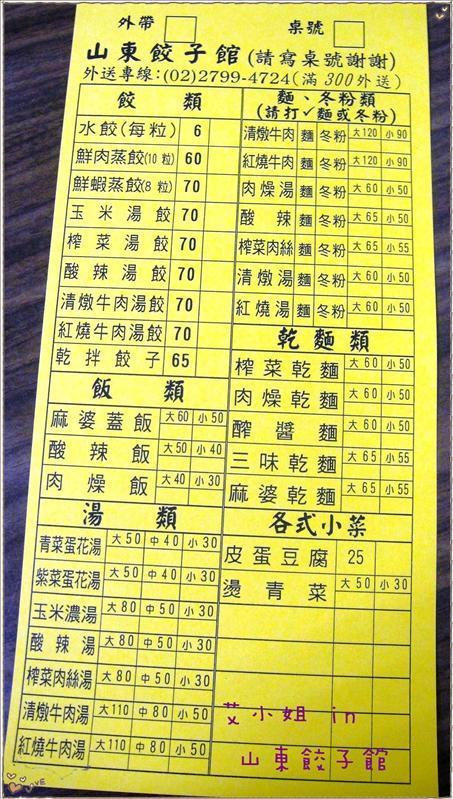 外帶 桌號
山東餃子館(請寫桌號謝謝)
外送專線:(02)2799-4724(滿300外送)
餃類
水餃(每粒) 6
鮮肉蒸餃(10粒) 60
鮮蝦蒸餃(8粒) 70
玉米湯餃 70
榨菜湯餃 70
酸辣湯餃 70
清燉牛肉湯餃 70
紅燒牛肉湯餃 70
乾拌餃子 65
飯類
麻婆蓋飯 大60 小50
酸辣飯 大50 小40
肉燥飯 大40 小30
湯類
青菜蛋花湯 大50 中40 小30
紫菜蛋花湯 大50 中40 小30
玉米濃湯 大80 中50 小30
酸辣湯 大80 中50 小30
榨菜肉絲湯 大80 中50 小30
清燉牛肉湯 大110 中80 小50
紅燒牛肉湯 大110 中80 小50
麵、冬粉類
(請打✓麵或冬粉)
清燉牛肉 麵 冬粉 大120 小90
紅燒牛肉 麵 冬粉 大120 小90
肉燥湯 麵 冬粉 大60 小50
酸辣 麵 冬粉 大65 小50
榨菜肉絲 麵 冬粉 大65 小55
清燉湯 麵 冬粉 大60 小50
紅燒湯 麵 冬粉 大60 小50
乾麵類
榨菜乾麵 大60 小50
肉燥乾麵 大60 小50
醡醬麵 大60 小50
三味乾麵 大65 小55
麻婆乾麵 大65 小55
各式小菜
皮蛋豆腐 25
燙青菜 大50 小30
艾小姐 in
山東餃子館
LOVE